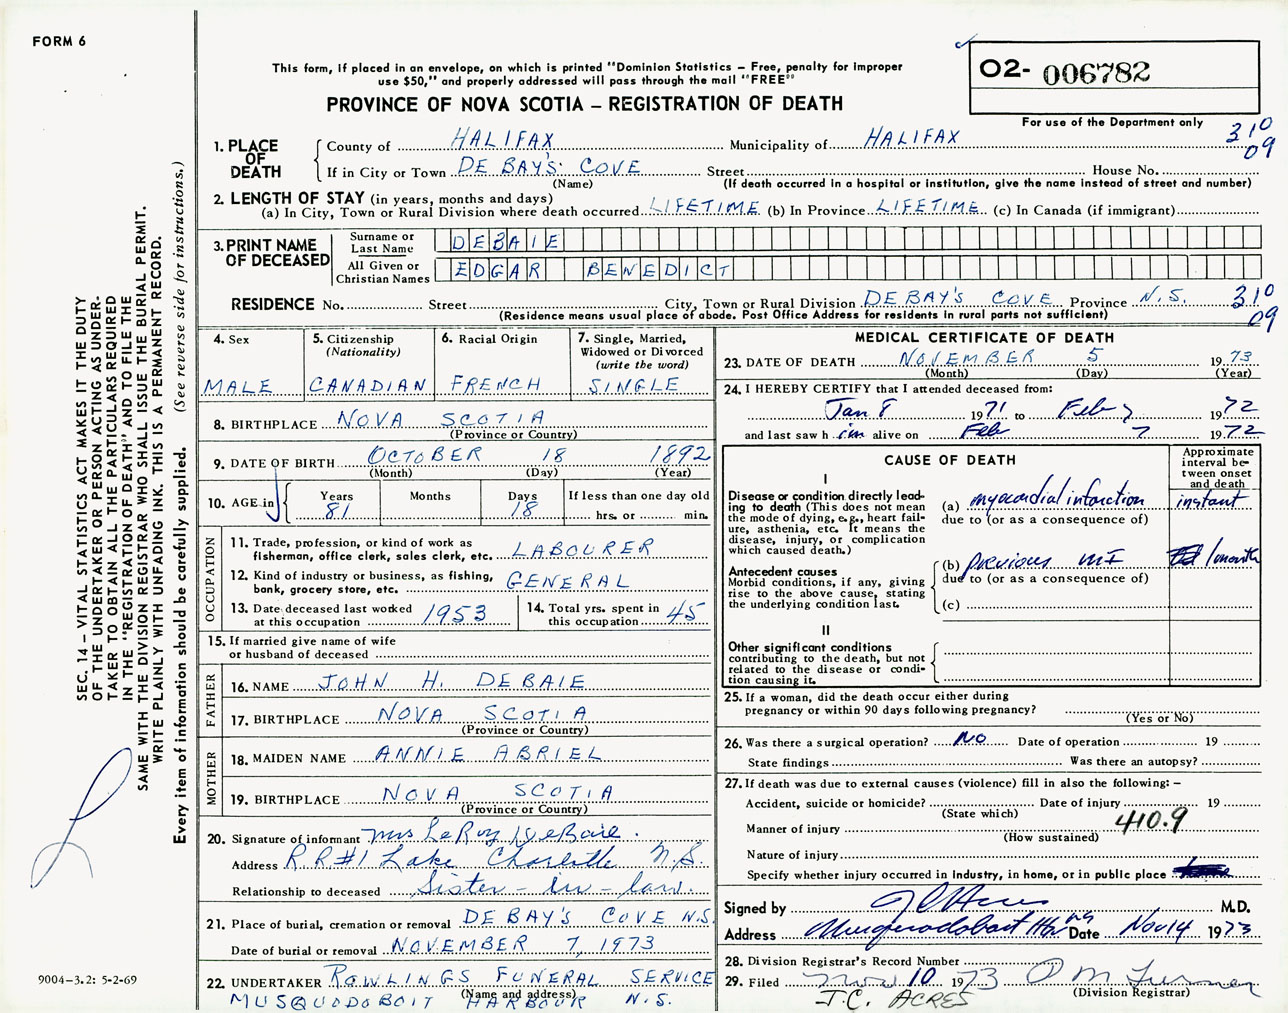 FORM 6
This form, if placed in an envelope, on which is printed "Dominion Statistics – Free, penalty for improper
use $50," and properly addressed will pass through the mail "FREE"
O2- 006782
PROVINCE OF NOVA SCOTIA – REGISTRATION OF DEATH
For use of the Department only
310
09
1. PLACE OF DEATH
County of HALIFAX Municipality of HALIFAX
If in City or Town DE BAY'S COVE Street House No.
(Name) (If death occurred in a hospital or institution, give the name instead of street and number)
2. LENGTH OF STAY (in years, months and days)
(a) In City, Town or Rural Division where death occurred LIFETIME (b) In Province LIFETIME (c) In Canada (if immigrant)
3. PRINT NAME OF DECEASED
Surname or Last Name DEBAIE
All Given or Christian Names EDGAR BENEDICT
RESIDENCE No. Street City, Town or Rural Division DEBAY'S COVE Province N.S. 310
(Residence means usual place of abode. Post Office Address for residents in rural parts not sufficient) 09
4. Sex
MALE
5. Citizenship
(Nationality)
CANADIAN
6. Racial Origin
FRENCH
7. Single, Married,
Widowed or Divorced
(write the word)
SINGLE
8. BIRTHPLACE NOVA SCOTIA
(Province or Country)
9. DATE OF BIRTH OCTOBER 18 1892
(Month) (Day) (Year)
10. AGE in
Years Months Days If less than one day old
81 18 hrs. or min.
OCCUPATION
11. Trade, profession, or kind of work as
fisherman, office clerk, sales clerk, etc. LABOURER
12. Kind of industry or business, as fishing,
bank, grocery store, etc. GENERAL
13. Date deceased last worked
at this occupation 1953
14. Total yrs. spent in
this occupation 45
15. If married give name of wife
or husband of deceased
FATHER
16. NAME JOHN H. DEBAIE
17. BIRTHPLACE NOVA SCOTIA
(Province or Country)
MOTHER
18. MAIDEN NAME ANNIE ABRIEL
19. BIRTHPLACE NOVA SCOTIA
(Province or Country)
20. Signature of informant Mrs LeRoy DeBaie.
Address R.R#1 Lake Charlotte N.S.
Relationship to deceased Sister-in-law.
21. Place of burial, cremation or removal DE BAY'S COVE N.S.
Date of burial or removal NOVEMBER 7, 1973
22. UNDERTAKER ROWLINGS FUNERAL SERVICE
(Name and address)
MUSQUODOBOIT HARBOUR N.S.
MEDICAL CERTIFICATE OF DEATH
23. DATE OF DEATH NOVEMBER 5 1973
(Month) (Day) (Year)
24. I HEREBY CERTIFY that I attended deceased from:
Jan 8 1971 to Feb 7 1972
and last saw him alive on Feb 7 1972
CAUSE OF DEATH
Approximate
interval be-
tween onset
and death
I
Disease or condition directly lead-
ing to death (This does not mean
the mode of dying, e.g., heart fail-
ure, asthenia, etc. It means the
disease, injury, or complication
which caused death.)
(a) myocardial infarction instant
due to (or as a consequence of)
Antecedent causes
Morbid conditions, if any, giving
rise to the above cause, stating
the underlying condition last.
(b) previous MI 1 month
due to (or as a consequence of)
(c)
II
Other significant conditions
contributing to the death, but not
related to the disease or condi-
tion causing it.
25. If a woman, did the death occur either during
pregnancy or within 90 days following pregnancy?
(Yes or No)
26. Was there a surgical operation? No Date of operation 19
State findings Was there an autopsy?
27. If death was due to external causes (violence) fill in also the following: –
Accident, suicide or homicide? Date of injury 19
(State which)
Manner of injury 410.9
(How sustained)
Nature of injury
Specify whether injury occurred in industry, in home, or in public place
Signed by J C Acres M.D.
Address Musquodoboit Hbr NS Date Nov 14 1973
28. Division Registrar's Record Number
29. Filed Nov 10 1973
(Division Registrar)
J.C. ACRES
SEC. 14 – VITAL STATISTICS ACT MAKES IT THE DUTY
OF THE UNDERTAKER OR PERSON ACTING AS UNDER-
TAKER TO OBTAIN ALL THE PARTICULARS REQUIRED
IN THE "REGISTRATION OF DEATH" AND TO FILE THE
SAME WITH THE DIVISION REGISTRAR WHO SHALL ISSUE THE BURIAL PERMIT.
WRITE PLAINLY WITH UNFADING INK. THIS IS A PERMANENT RECORD.
Every item of information should be carefully supplied. (See reverse side for instructions.)
9004-3.2: 5-2-69